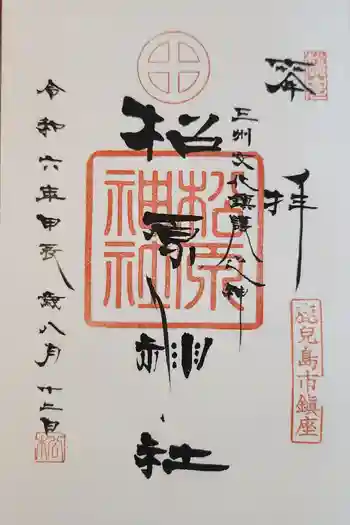 奉拝
三州文化鎮護八神
松原神社
松原神社
鹿児島市鎮座
令和六年甲辰歳八月廿二日
松